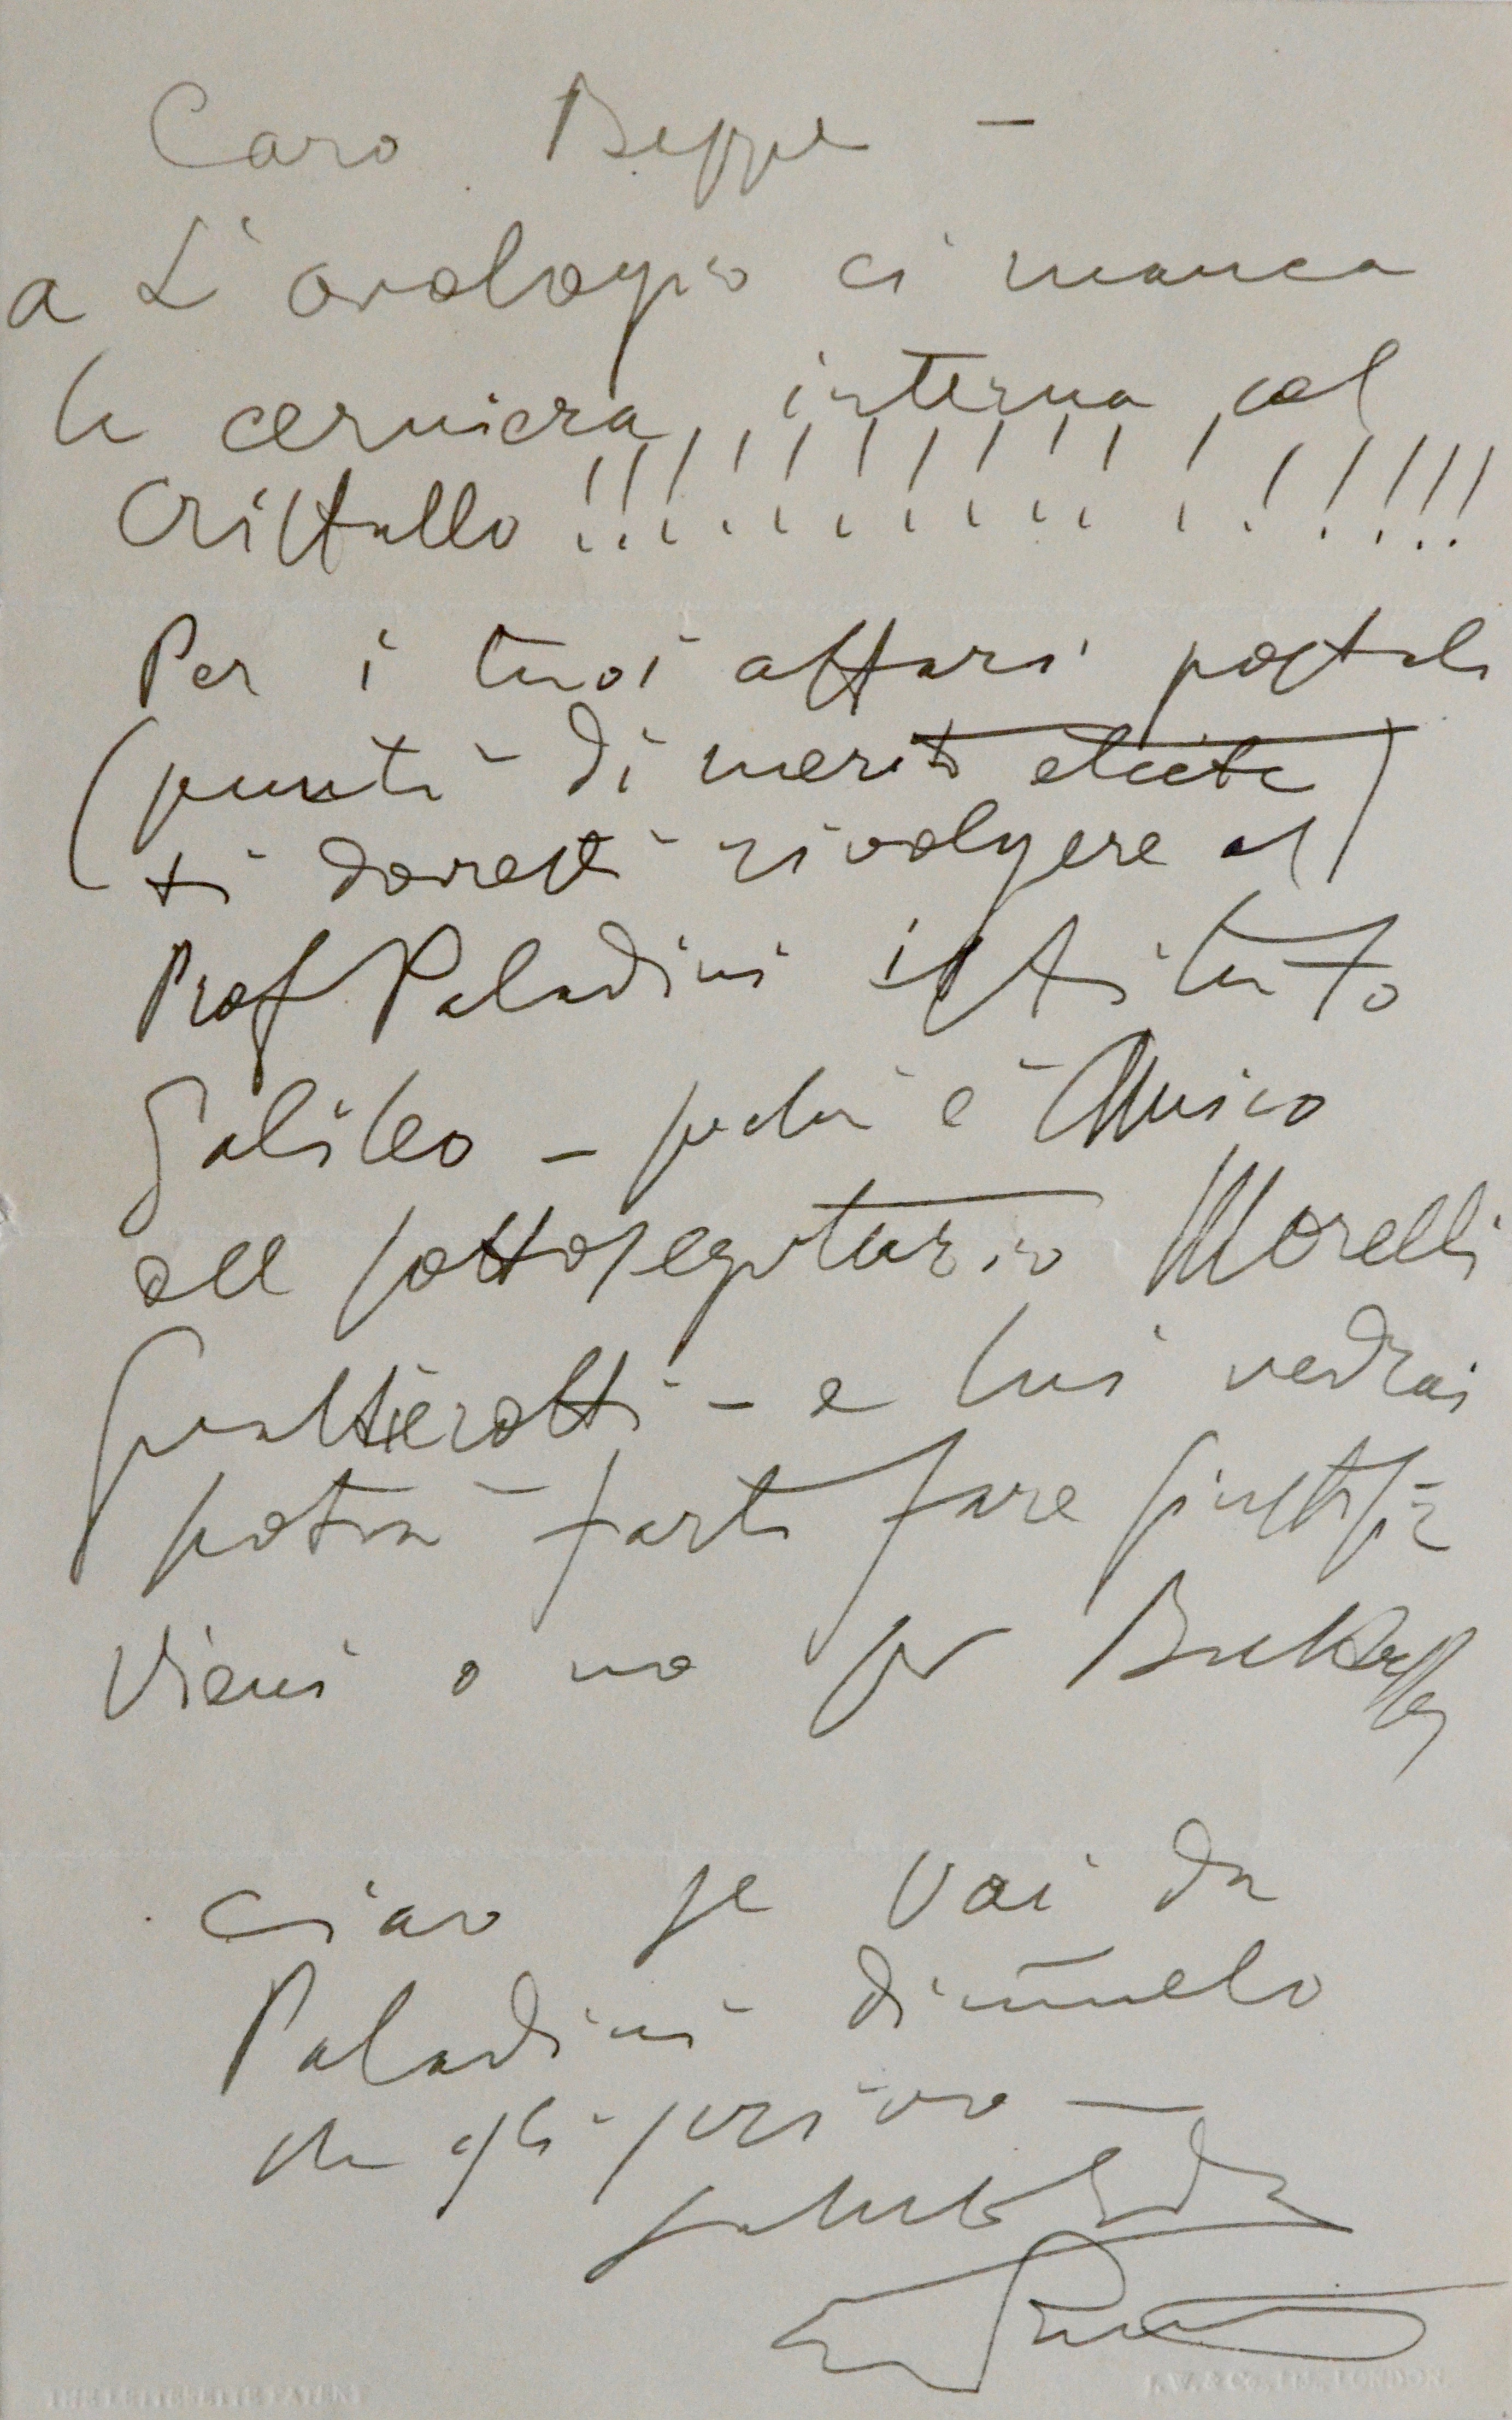 Caro Beppe —
a L'orologio ci manca
la cerniera interna col
cristallo !!!!!!!!!!!!!!!!!!
Per i tuoi affari postali
(punti di merito etcetc)
ti dovresti rivolgere al
Prof Paladini istituto
Galileo — perchè è Amico
del sottosegretario Morelli
Gualtierotti — e lui vedrai
potrà farti fare giustizia
Vieni o no per
ciao se vai da
Paladini dimmelo
che gli scrivo —